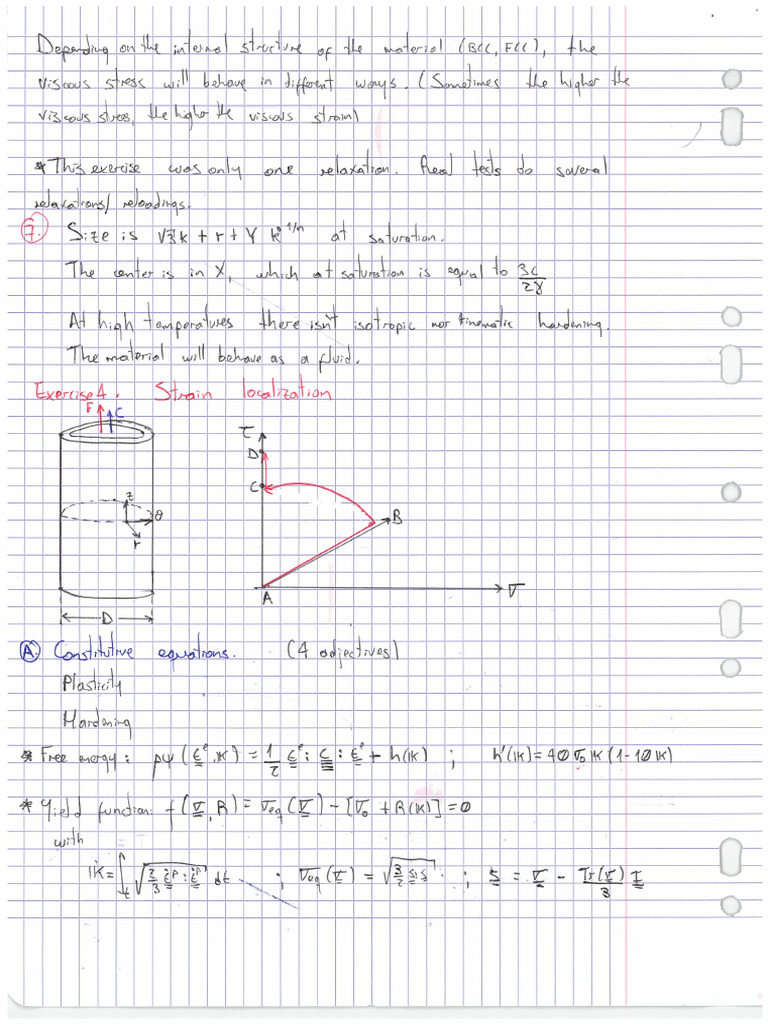 Depending on the internal structure of the material (BCC, FCC), the
viscous stress will behave in different ways. (Sometimes the higher the
viscous stress, the higher the viscous strain)
* This exercise was only one relaxation. Real tests do several
relaxations/reloadings.
7. Size is √3k + r + γ k^1/n at saturation.
The center is in X, which at saturation is equal to 3C/2γ
At high temperatures there isn't isotropic nor kinematic hardening.
The material will behave as a fluid.
Exercise 4. Strain localization
F C
z
θ
r
D
τ
D
C
B
A
σ
A. Constitutive equations. (4 adjectives)
Plasticity
Hardening
* Free energy: ρψ(ε^e, K) = 1/2 ε^e : C : ε^e + h(K) ; h'(K) = 40 σ₀ K (1-10K)
* Yield function: f(σ, R) = σeq(σ) - [σ₀ + R(K)] = 0
with
K = ∫_t √(2/3 ε̇^p : ε̇^p) dt ; σeq(σ) = √(3/2 s:s) ; s = σ - Tr(σ)/3 I